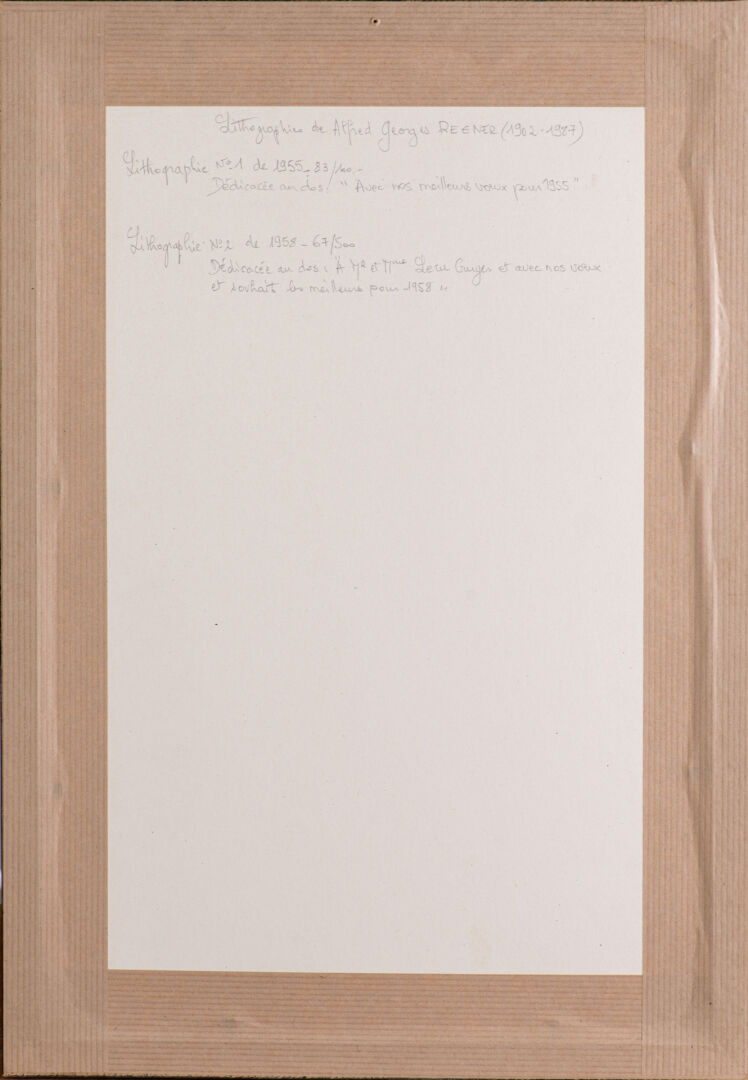 Lithographies de Alfred Georges REGNER (1902-1987)
Lithographie N°1 de 1955_83/100.-
Dédicacée au dos: " Avec nos meilleurs vœux pour 1955 ".
Lithographie N°2 de 1958 - 67/500
Dédicacée au dos : " A Mr et Mme et avec nos vœux
et souhaits les meilleurs pour 1958 "